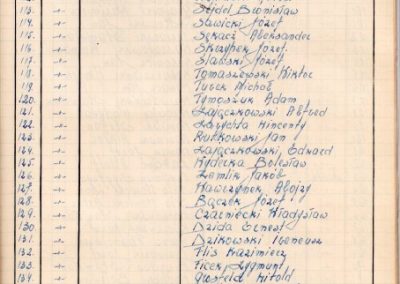 113. -"- Seydel Bronisław
114. -"- Sławicki Józef
115. -"- Sękacz Aleksander
116. -"- Skrzypek Józef
117. -"- Slabski Józef
118. -"- Tomaszewski Wiktor
119. -"- Turek Michał
120. -"- Tymoszuk Adam
121. -"- Zajączkowski Alfred
122. -"- Wincenty
123. -"- Rutkowski Jan
124. -"- Zajączkowski Edward
125. -"- Wyderka Bolesław
126. -"- Żemlik Jakób
127. -"- Wawrzynek Alojzy
128. -"- Bączek Józef
129. -"- Czarniecki Władysław
130. -"- Dzida Ernest
131. -"- Dzikowski Ireneusz
132. -"- Flis Kazimierz
133. -"- Ficek Zygmunt
134. -"- Witold